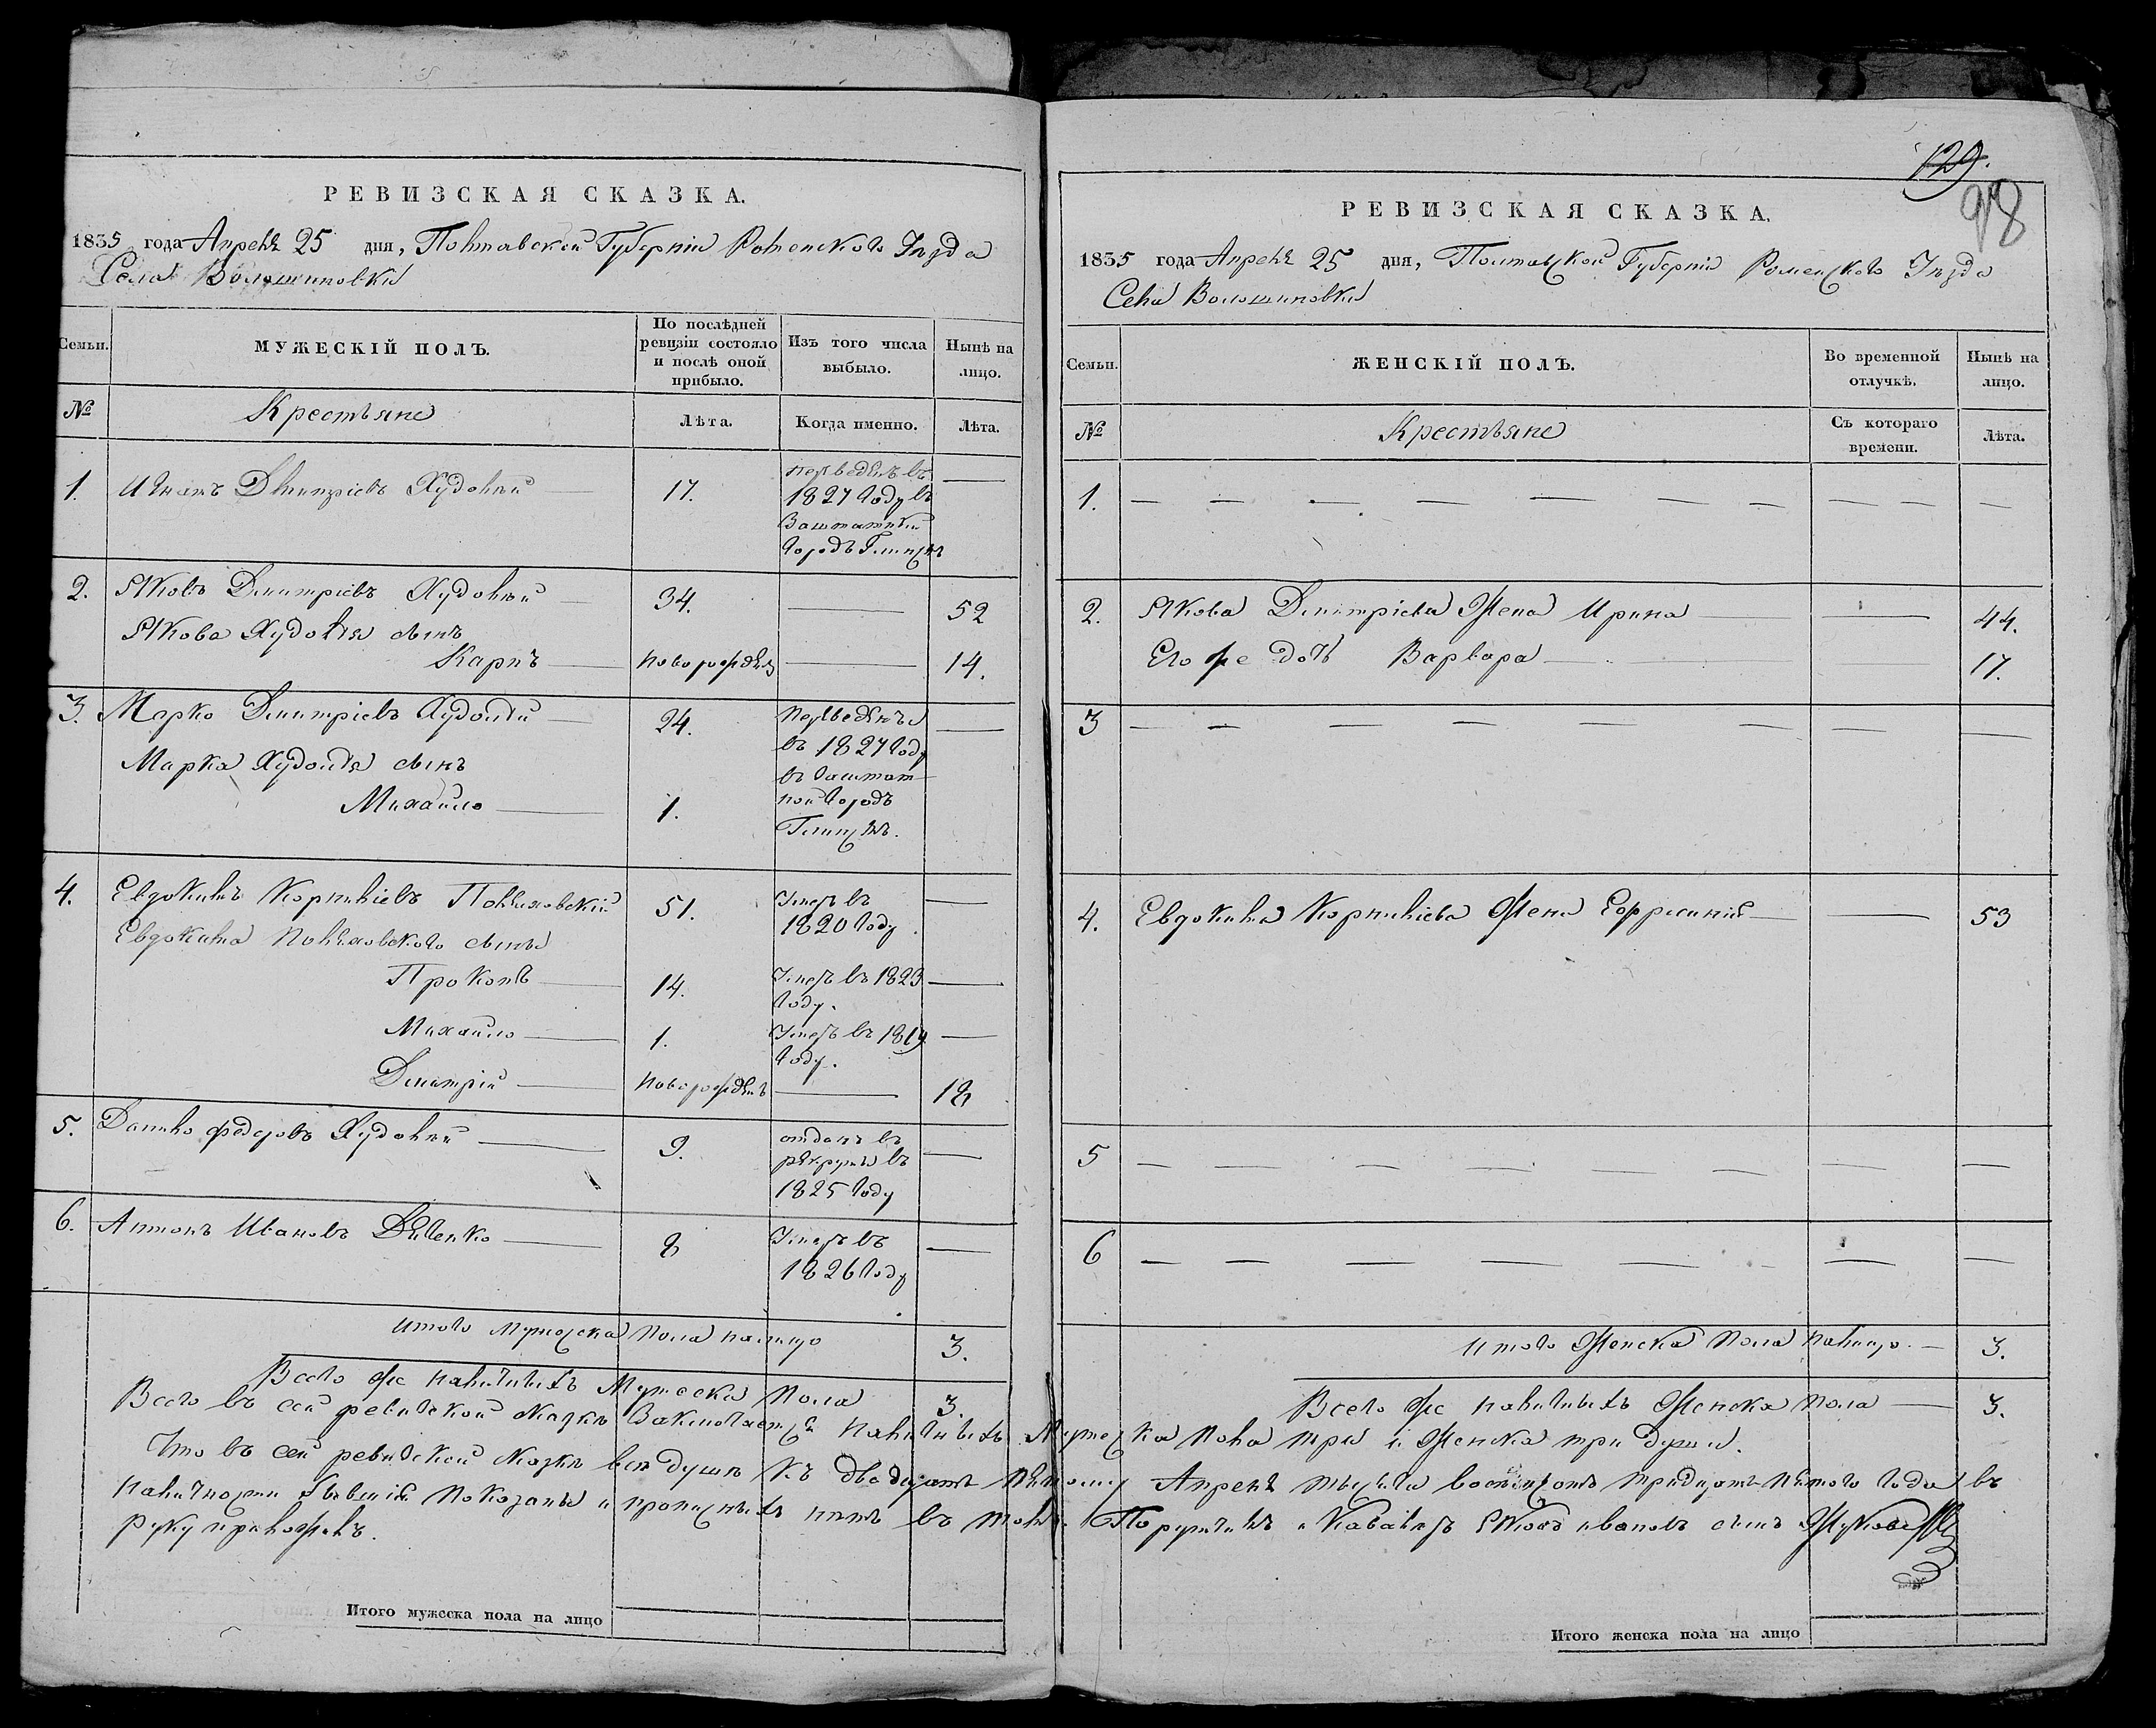 РЕВИЗСКАЯ СКАЗКА.
1835 года Апреля 25 дня, Полтавской Губернии Роменского Уезда
Села Волошиновки
Семьи.
МУЖЕСКІЙ ПОЛЪ.
По послѣдней ревизіи состояло и послѣ оной прибыло.
Изъ того числа выбыло.
Нынѣ на лицо.
№
Крестьяне
Лѣта.
Когда именно.
Лѣта.
1. Игнатъ Дмитріевъ Худолѣй 17.
переведенъ въ
1827 году въ
Заштатный
городъ Глинскъ
2. Яковъ Дмитріевъ Худолѣй 34. 52
Якова Худолѣя сынъ
Карпъ новорожденъ 14.
3. Марко Дмитріевъ Худолѣй 24.
Марка Худолѣя сынъ
Михайло 1.
переведены
въ 1827 году
въ заштат-
ной городъ
Глинскъ.
4. Евдокимъ Корнѣіевъ 51. Умеръ въ
1820 году
Евдокима сыны
Прокопъ 14. Умеръ въ 1823
году.
Михайло 1. Умеръ въ 1819
году.
Дмитрій новорожденъ 18
5. Данило Федоровъ Худолѣй 9.
отданъ въ
рекруты въ
1825 году
6. Антонъ Ивановъ 8 Умеръ въ
1826 году
итого мужеска пола налицо 3.
Всего же наличныхъ Мужеска пола 3.
Всего въ сей ревизской сказкѣ Заключается наличныхъ Мужеска пола три и Женска три души.
Что въ сей ревизской сказкѣ всѣ душѣ къ двадцать пятому Апреля тысяча восемсотъ тридцать пятого года въ
наличности бывшія показаны и прописныхъ нѣтъ въ томъ. Порутчикъ и Кавалеръ Яковъ ивановъ сынъ
руку приложилъ.
Итого мужеска пола на лицо
129.
98
РЕВИЗСКАЯ СКАЗКА.
1835 года Апреля 25 дня, Полтавской Губерніи Роменского Уезда
Села Волошиновки
Семьи.
ЖЕНСКІЙ ПОЛЪ.
Во временной отлучкѣ.
Нынѣ на лицо.
№
Крестьяне
Съ котораго времени.
Лѣта.
1.
2. Якова Дмитріева Жена Ирина 44.
Его же дочь Варвара 17.
3
4. Евдокима Корнѣіева Жена Ефросинія 53
5
6
итого Женска пола налицо 3.
Всего же наличныхъ Женска пола 3.
Итого женска пола на лицо